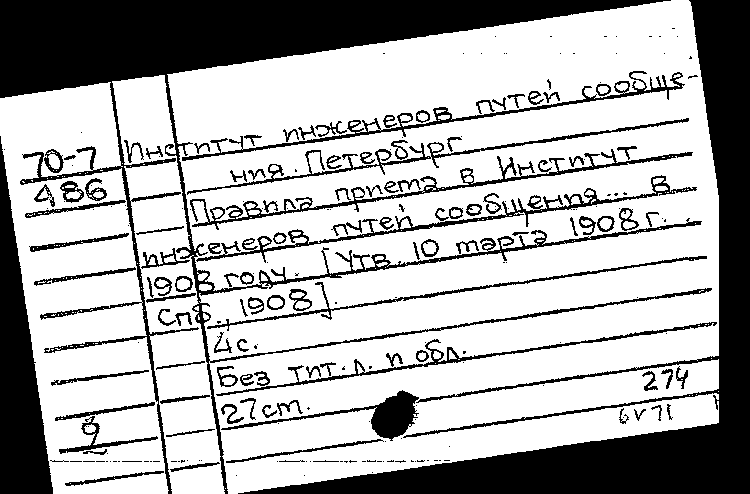 70-7 Институт инженеров путей сообще-
486 ния. Петербург
Правила приема в Институт
инженеров путей сообщения... в
1908 году. [Утв. 10 марта 1908 г.
Спб., 1908].
4 с.
Без тит. л. и обл.
27 cm. 274
9 6 V 71